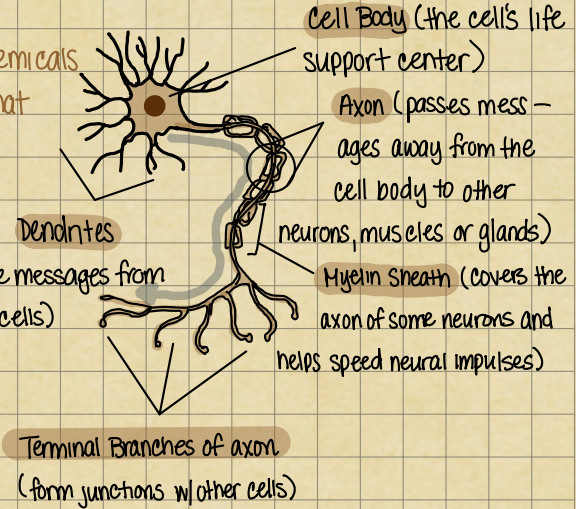 Cell Body (the cell's life
support center)
emicals
hat
Axon (passes mess-
ages away from the
cell body to other
neurons, muscles or glands)
Dendrites
e messages from
cells)
Myelin Sheath (covers the
axon of some neurons and
helps speed neural impulses)
Terminal Branches of axon
(form junctions w/other cells)